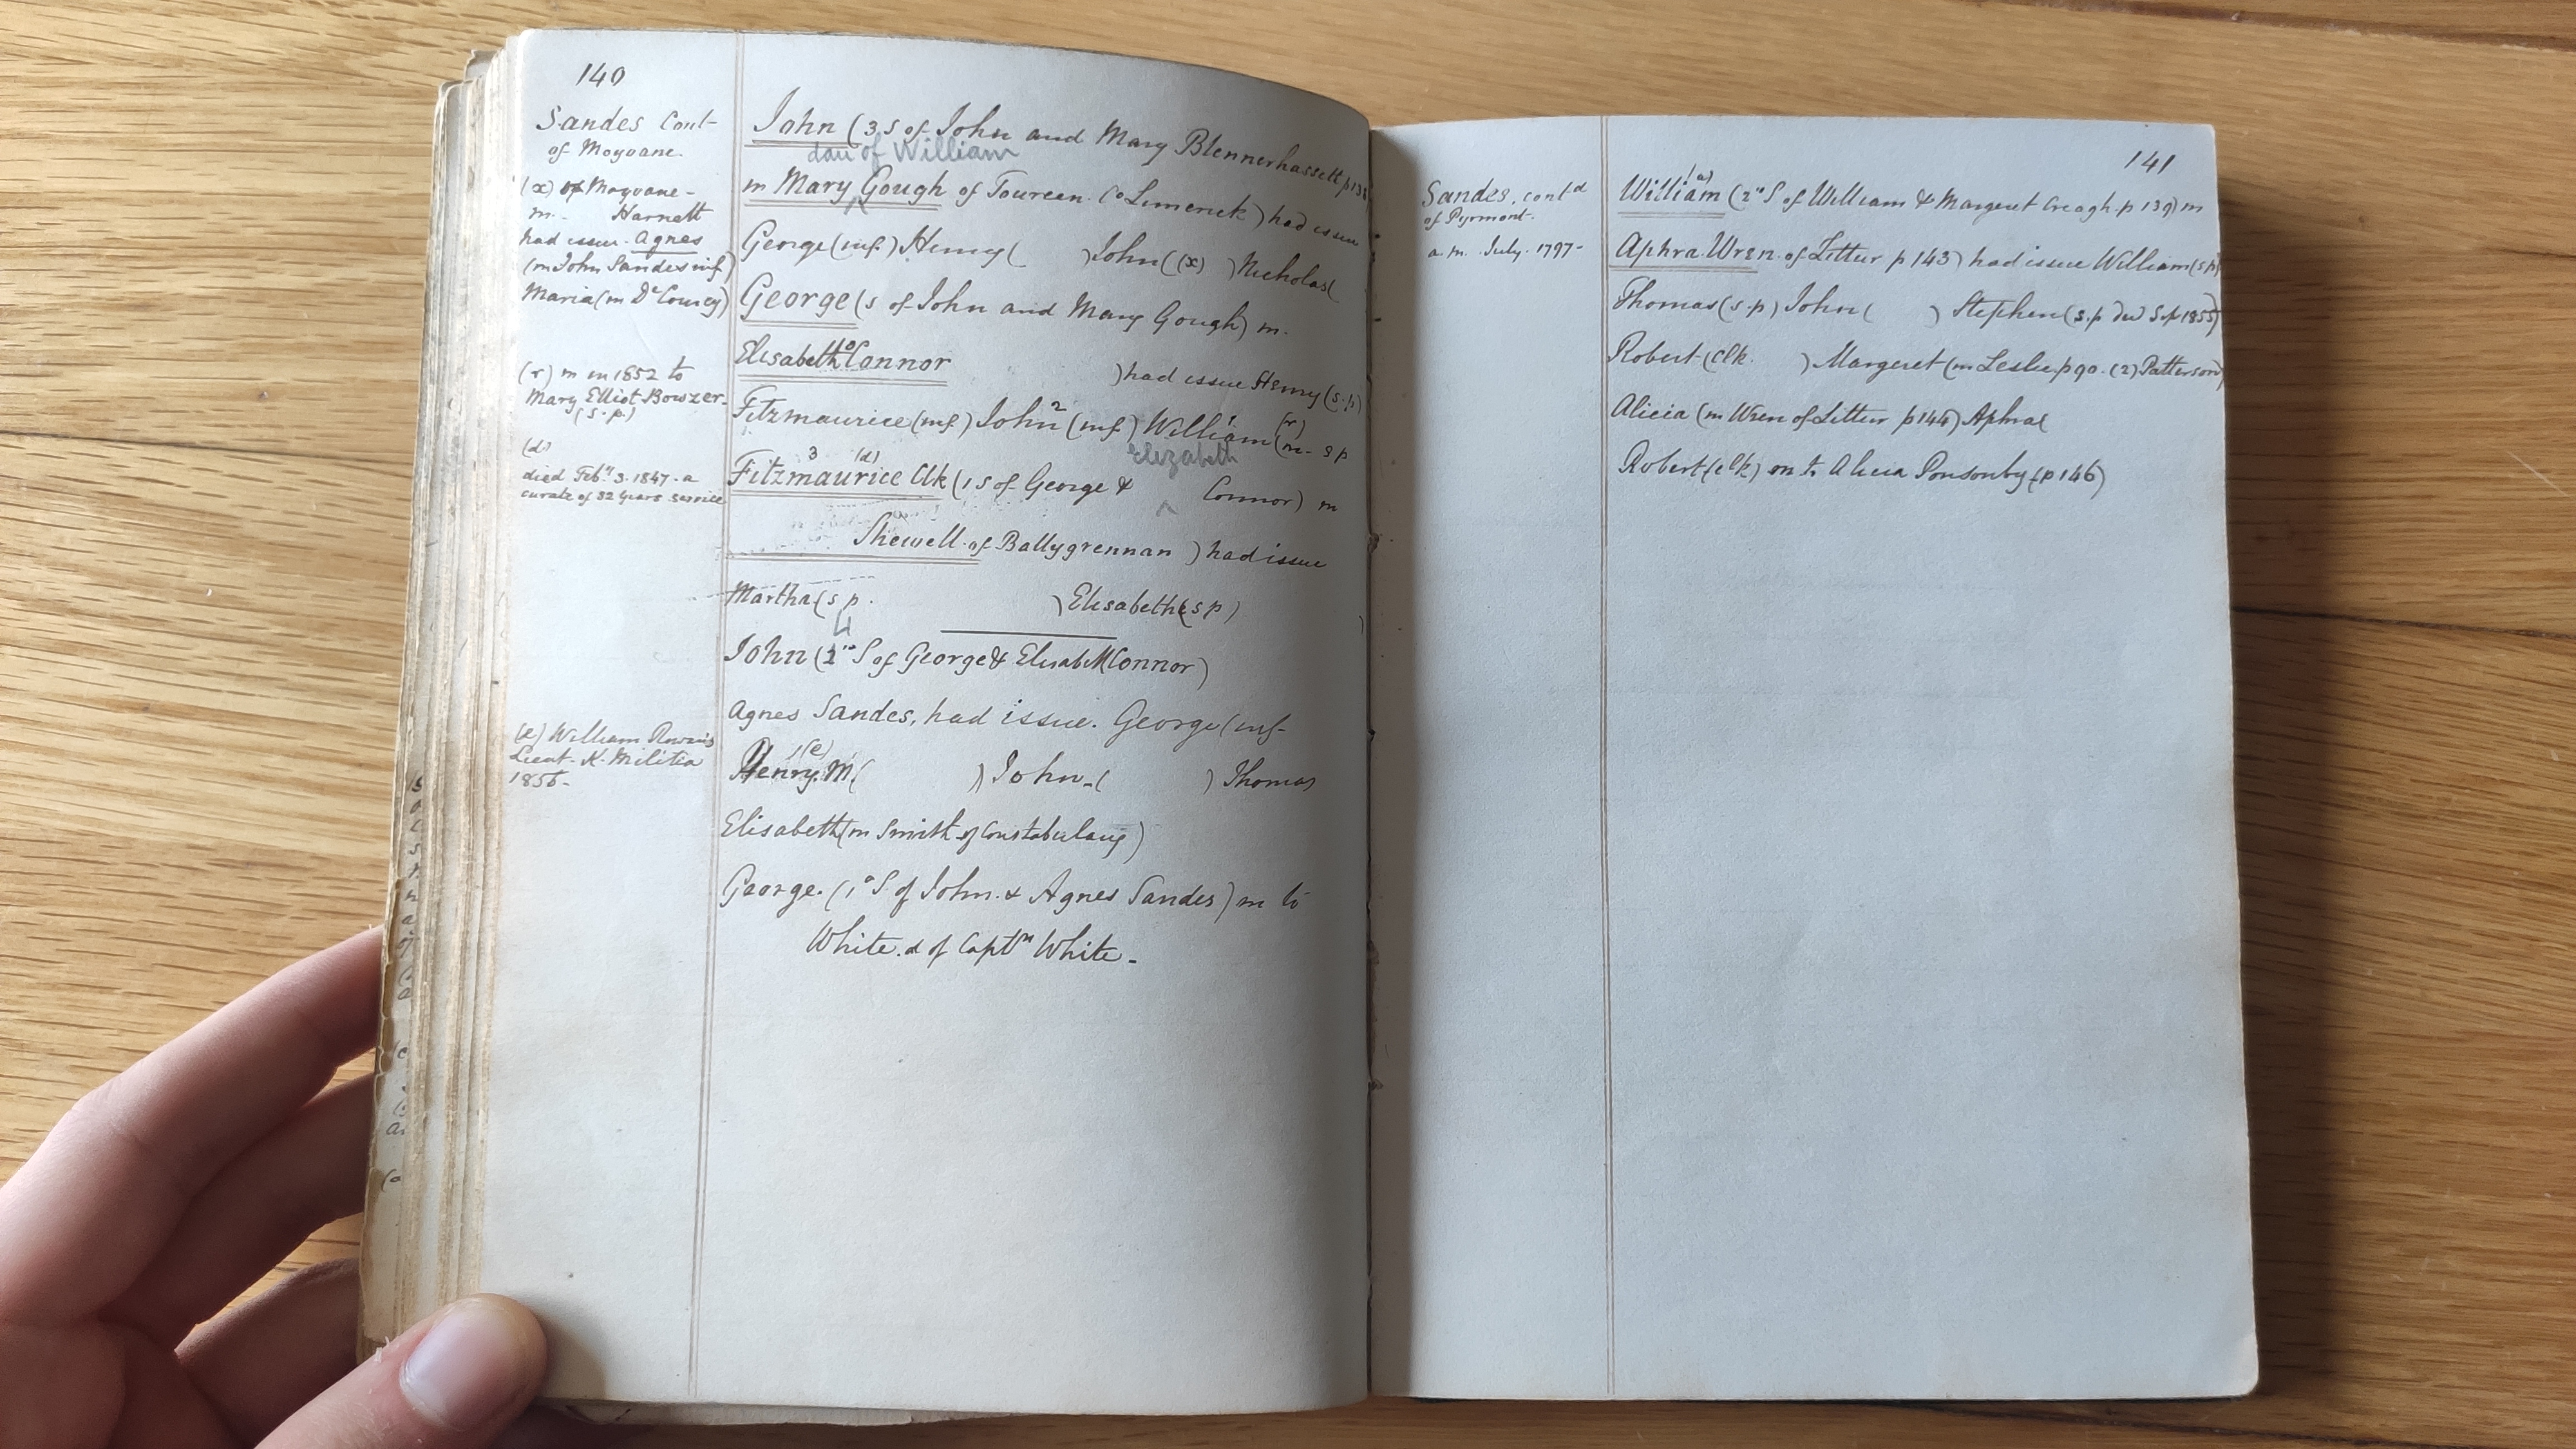 140
Sandes Cont-
of Moyvane.
(x) of Moyvane-
m. Harnett
had issue. Agnes
(m John Sandes inf)
Maria (m De Courcy)
(r) m in 1852 to
Mary Elliot Bowzer-
(s.p.)
(d)
died Feby 3. 1847. a
curate of 32 years service
(e) William Rowan
Lieut. K. Militia
1856-
John (3 S of John and Mary Blennerhassett p138
dau of William
m Mary Gough of Toureen. Co Limerick) had issue
George (inf) Henry ( ) John ((x) ) Nicholas (
George (s of John and Mary Gough) m.
Elisabeth O'Connor ) had issue Henry (s.p)
Fitzmaurice (inf) John 2 (inf) William 1 (r) (m- s p
Elizabeth
3 (d)
Fitzmaurice Clk (1 S of George & ^ Connor) m
Shewell of Ballygrennan ) had issue
Martha (s p. ) Elisabeth (s p)
4
John (2nd S of George & Elisabeth Connor)
Agnes Sandes, had issue. George (inf-
1 (e)
Henry. M ( ) John- ( ) Thomas
Elisabeth (m Smith of Constabulary)
George. (1o S of John. & Agnes Sandes) m to
White. d of Captn White-
141
Sandes, contd
of Pyrmont-
a m. July. 1797-
1 (a)
William (2nd S of William & Margeret Creagh. p 139) m
Aphra Wren of Littur p 143) had issue William (s p)
Thomas (s.p) John ( ) Stephen (s.p 1855)
Robert (Clk. ) Margeret (m Leslie p 90. (2) Patterson)
Alicia (m Wren of Littur p 144) Aphra (
Robert (clk) m to Alicia Ponsonby (p 146)